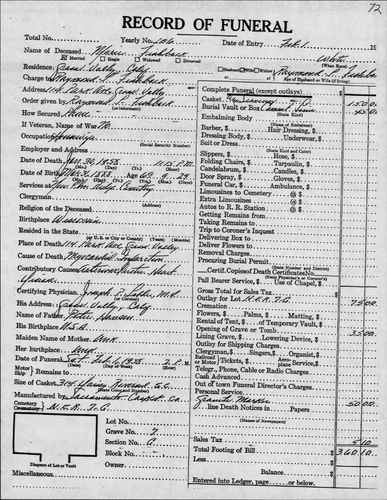 72
RECORD OF FUNERAL
Total No. Yearly No. 126 Date of Entry Feb. 1. 19
Name of Deceased Marie Fishback White
(What Race)
Married Single Widowed Divorced
Residence Grass Valley, Calif Husband Widow Raymond L. Fishback
Age of Husband or Wife (if living)
Charge to Raymond L. Fishback
Address 114 Park Ave Grass Valley
Order given by Raymond L. Fishback
(or informant)
How Secured
If Veteran, Name of War No
Occupation Housewife
Employer and Address
Date of Death Jan. 30, 1958 11:05 P.M.
Date of Birth 1888 Age 69 9 29
Services at Cemetery
Clergyman
Religion of the Deceased
Birthplace Wisconsin
Resided in the State
(or U.S. if City or County) (Years) (Months)
Place of Death 114 Park Ave Grass Valley
Cause of Death Myocardial Infarction
Contributory Causes Arteriosclerotic Heart
Disease
Certifying Physician Joseph M.D.
His Address Grass Valley, Calif
Name of Father Peter Hansen
His Birthplace U.S.A.
Maiden Name of Mother Unk
Her birthplace Unk
Date of Sat. Feb. 1, 1958 2 P.M.
Motor Ship Remains to
Size of Casket
Manufactured by Sacramento Casket Co
Cemetery
Crematory N.E.B. F.G.
Lot No.
Grave No. 7
Section No. A
Block No.
Owner
Diagram of Lot or Vault
Miscellaneous
Complete Funeral (except outlays) $
Casket 150.00
Burial Vault or Box 45.00
(State Kind)
Embalming Body
Barber, $ Hair Dressing, $
Dressing Body, $ Underwear, $
Suit or Dress
(State Kind and Color)
Slippers, $ Hose, $
Folding Chairs, $ Tarpaulin, $
Candelabrum, $ Candles, $
Door Spray, $ Gloves, $
Funeral Car, $ Ambulance, $
Limousines to Cemetery @ $
Extra Limousines @ $
Autos to R. R. Station @ $
Getting Remains from
Taking Remains to
Trip to Coroner's Inquest
Delivering Box to
Deliver Flowers to
Removal Charges
Procuring Burial Permit
(State Number and District)
Certif. Copies of Death Certificates No.
(State Physician's or Coroner's)
Pall Bearer Service, $ Use of Chapel, $
Gross Total for Sales Tax
Outlay for Lot N.E.B. F.G. 75.00
Cremation
Flowers, $ Palms, $ Matting, $
Rental of Tent, $ of Temporary Vault, $
Opening of Grave or Tomb 35.00
Lining Grave, $ Lowering Device, $
Outlay for Shipping Charges
Clergyman, $ Singers, $ Organist, $
Railroad Tickets, $
Telegr., Phone, Cable or Radio Charges
Cash Advanced
Out of town Funeral Director's Charges
Personal Service
Granite Marker 50.00
line Death Notices in Papers
(Names of Newspapers)
Sales Tax 5.10
Total Footing of Bill $ 360.10
Less
Balance
Entered into Ledger, page or below.